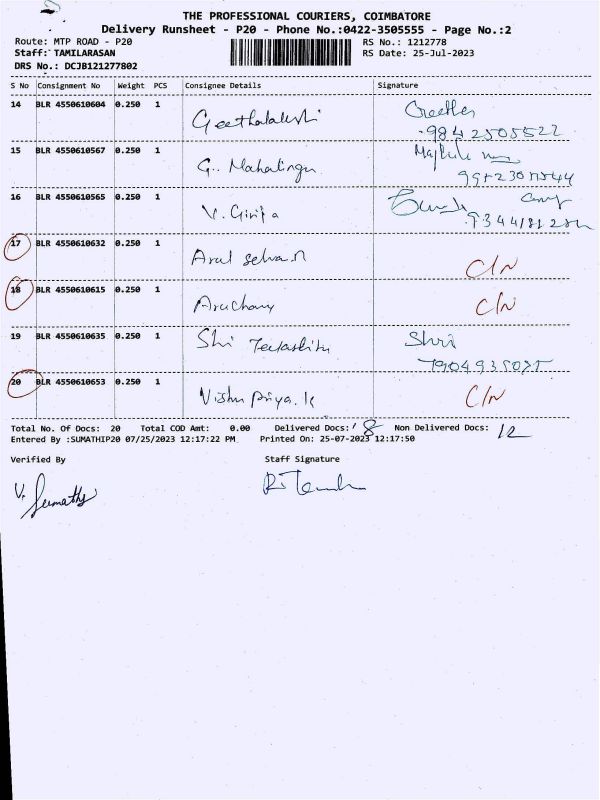 THE PROFESSIONAL COURIERS, COIMBATORE
Delivery Runsheet - P20 - Phone No.:0422-3505555 - Page No.:2
Route: MTP ROAD - P20 RS No.: 1212778
Staff: TAMILARASAN RS Date: 25-Jul-2023
DRS No.: DCJB121277802
S No Consignment No Weight PCS Consignee Details Signature
14 BLR 4550610604 0.250 1 Geethalakshi Geetha
9842505522
15 BLR 4550610567 0.250 1 G. Mahalingn
16 BLR 4550610565 0.250 1 V. Girija
17 BLR 4550610632 0.250 1 Arul Selvan C/N
18 BLR 4550610615 0.250 1 C/N
19 BLR 4550610635 0.250 1 Shi Shri
20 BLR 4550610653 0.250 1 Vishnu Priya. K C/N
Total No. Of Docs: 20 Total COD Amt: 0.00 Delivered Docs: 8 Non Delivered Docs: 12
Entered By :SUMATHIP20 07/25/2023 12:17:22 PM Printed On: 25-07-2023 12:17:50
Verified By Staff Signature
V. Sumathy